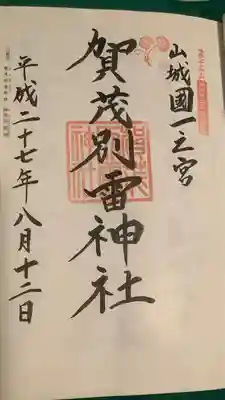 山城國一之宮
賀茂別雷神社
平成二十七年八月十二日